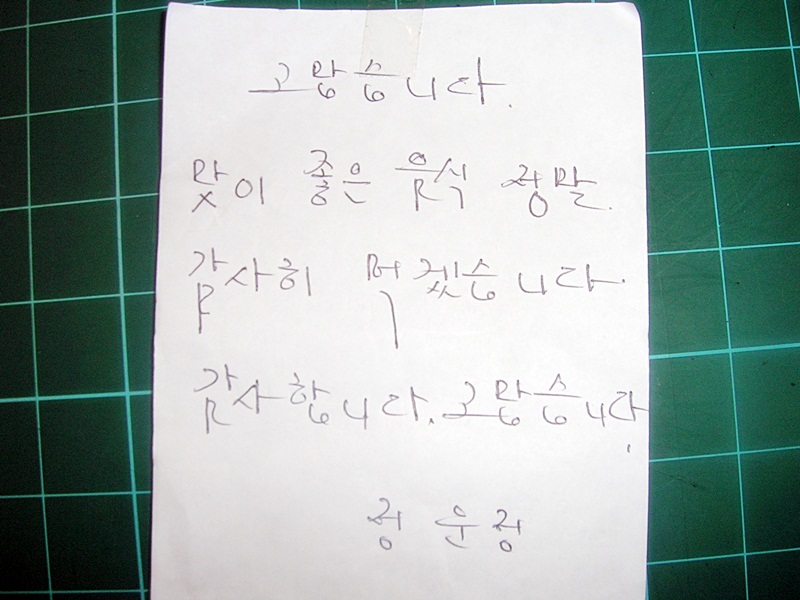 고맙습니다.
맛이 좋은 음식 정말.
감사히 먹겠습니다.
감사합니다. 고맙습니다.
정 운 정